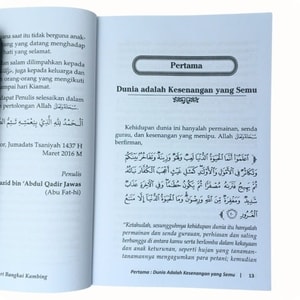 una saat itu tidak berguna anak-
orang yang datang menghadap
t yang selamat.
an dalimpahkan kepada
, juga kepada keluarga dan
orang yang mengikuti
mpai hari Kiamat.
dapat Penulis selesaikan dalam
pertolongan Allah
or, Jumadats Tsaniyah 1437 H
Maret 2016 M
Penulis
azid bin 'Abdul Qadir Jawas
(Abu Fat-hi)
ri Bangkai Kambing
Pertama
Dunia adalah Kesenangan yang Semu
Kehidupan dunia ini hanyalah permainan, senda
gurau, dan kesenangan yang menipu. Allah
berfirman,
﴿ اعْلَمُوا أَنَّمَا الْحَيَاةُ الدُّنْيَا لَعِبٌ وَلَهْوٌ وَزِينَةٌ وَتَفَاخُرٌ بَيْنَكُمْ
"Ketahuilah, sesungguhnya kehidupan dunia itu hanyalah
permainan dan senda gurauan, perhiasan dan saling
berbangga di antara kamu serta berlomba dalam kekayaan
dan anak keturunan, seperti hujan yang tanaman-
tanamannya mengagumkan para petani; kemudian
Pertama : Dunia Adalah Kesenangan yang Semu | 13